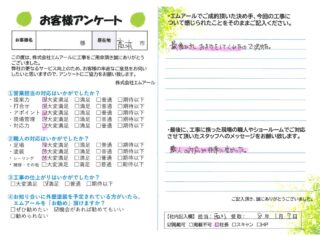 お客様アンケート
お客様名 様 居住地 市
この度は、株式会社エムアールに工事をご用命頂き誠にありがとうございました。
弊社の更なるサービス向上のため、お客様の率直なご意見をお伺いしたいと思いますので、アンケートにご協力をお願い致します。
株式会社エムアール
①営業担当の対応はいかがでしたか?
・提案力 大変満足 □満足 □普通 □期待以下
・打合せ 大変満足 □満足 □普通 □期待以下
・アポイント 大変満足 □満足 □普通 □期待以下
・対応力 大変満足 □満足 □普通 □期待以下
②職人の対応はいかがでしたか?
・足場 大変満足 □満足 □普通 □期待以下
・塗装 大変満足 □満足 □普通 □期待以下
・シーリング 大変満足 □満足 □普通 □期待以下
③工事の仕上がりはいかがでしたか?
□大変満足 満足 □普通 □期待以下
④お知り合いに外壁塗装を予定されている方がいたら、エムアールを「お勧め」頂けますか?
□ぜひ勧めたい 機会があれば勧めてもいい
□勧められない
・エムアールでご成約頂いた決め手、今回の工事について感じられたことをそのままご記入ください。
・最後に、工事に携った現場の職人やショールームでご対応させて頂いたスタッフへのメッセージをお願い致します。
ご記入頂き、誠にありがとうございました。
【社内記入欄】 担当 受取 月 日
掲載可 □掲載不可 □社長 □スキャン □HP